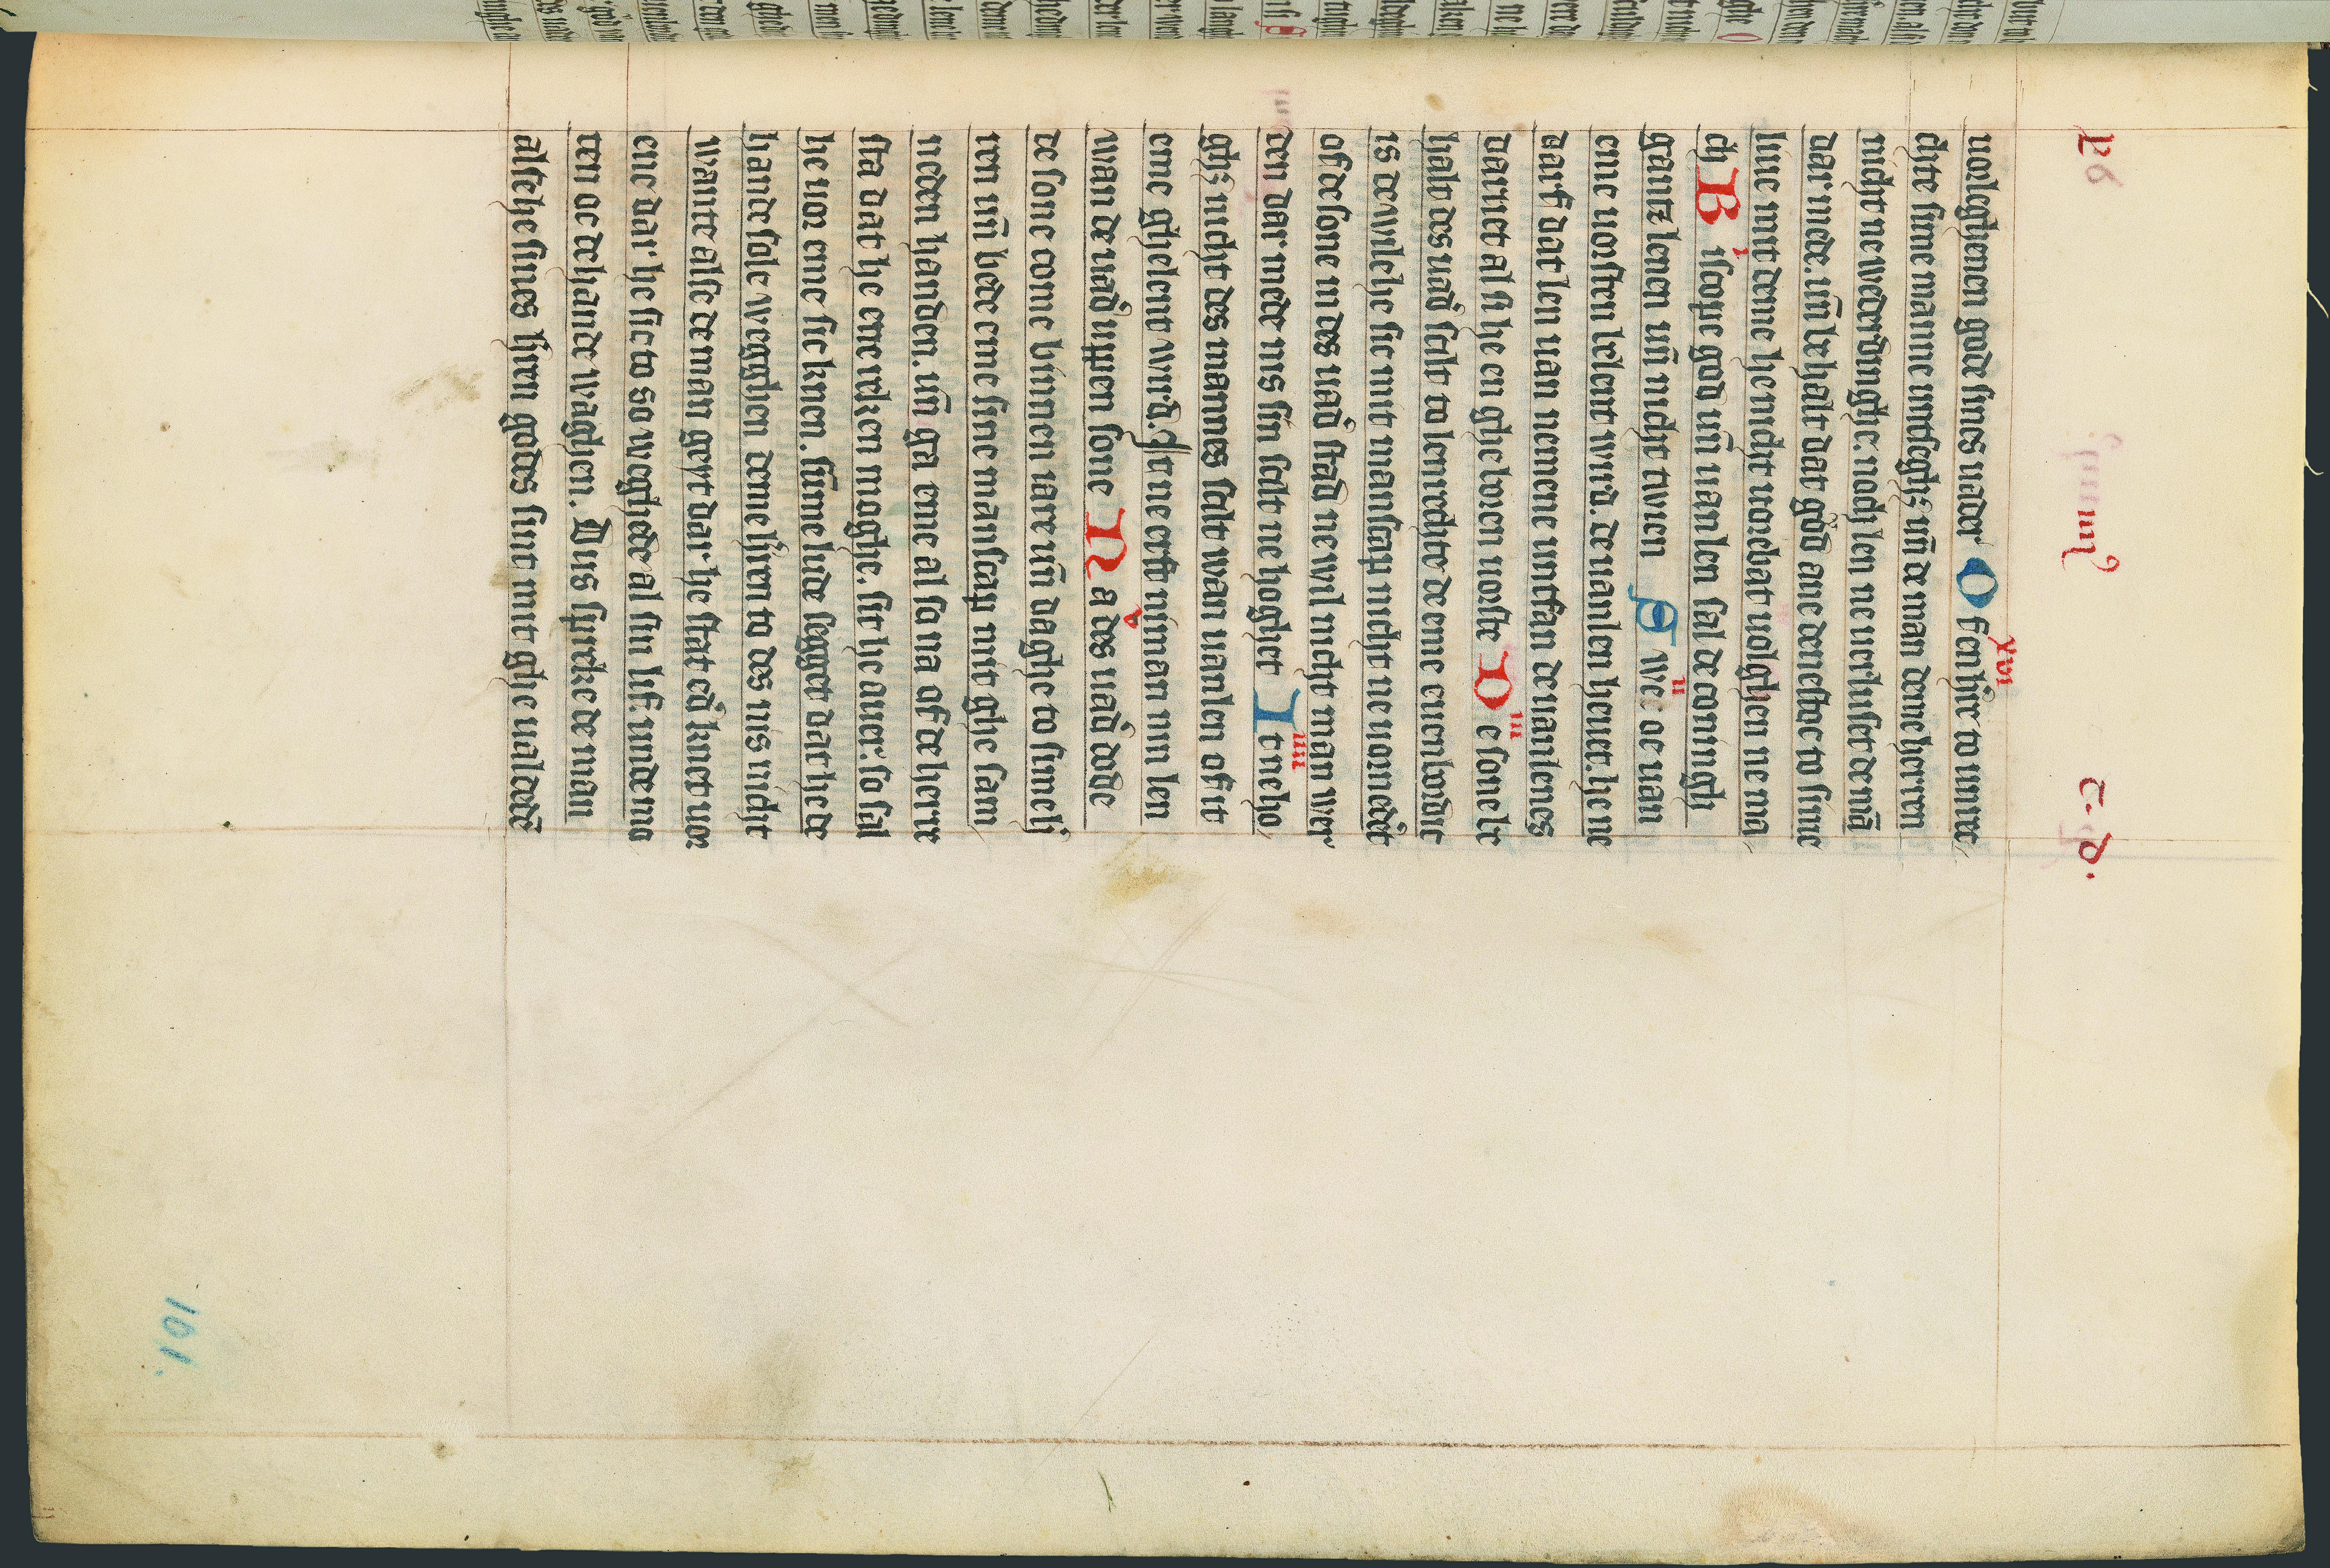 uolghenen gode sines uader O f en h're to unre
xvi
chte sime manne untseghs vn̄ de man deme herren
nicht ne wederdinghe. noch len ne uerluset de mā
dar mede. vn̄ behalt dat god ane denest de to sime
liue mit deme he nicht uorbat uolghen ne ma
ch B iscope god vn̄ uanlen sal de coningh
i
gantz lenen vn̄ nicht twien S we oc uan
ii
eme uorsten belent wird. de uanlen heuet. he ne
darf dat len uan nemene untfan de uanlenes
daruet al si he en ghelouen uorste D e sone be
iii
halt des uad' scilt to lenrechte de eme euenbordic
is de wile he sic mit manscap nicht ne uornedert
of de sone in des uad' stad ne wil nicht man wer
den dar mede nis sin scilt ne hoghet I t ne ho
iiii
ghs nicht des mannes scilt wan uanlen of it
eme ghelent wird. It ne erft niman nin len
wan de uad' uppen sone N a des uad' dode
v
de sone come binnen iare vn̄ daghe to sime h
ren vn̄ bede eme sine manscap mit ghe sam
neden handen. vn̄ ga eme al so na of de herre
sta dat he ene reken moghe. sit he auer. so sal
he uor eme sic knen. sume lude segget dat he de
hande sole wegghen deme h'ren to des nis nicht
wante alse de man geyt dar he stat od' knet uor
ene dar he sic to so weghede al sin lif. unde mo
ten oc de hande waghen. Dus spreke de man
alse he sines h'ren godes sint mit ghe ualdedē
101.